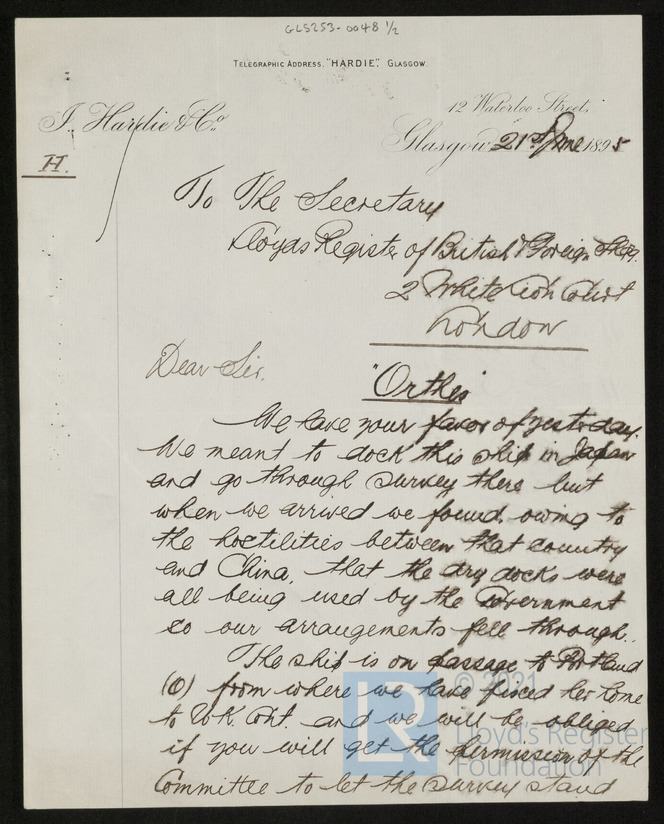 GLS253-0048 1/2
TELEGRAPHIC ADDRESS, "HARDIE", GLASGOW.
J. Hardie & Co.
12 Waterloo Street,
Glasgow 21st June 1895
H.
To The Secretary
Lloyds Register of British & Foreign Shipg.
2 White Lion Court
London
Dear Sir,
"Orthes"
We have your favor of yesterday.
We meant to dock this ship in Japan
and go through survey there but
when we arrived we found, owing to
the hostilities between that country
and China, that the dry docks were
all being used by the Government
so our arrangements fell through.
The ship is on passage to Portland
(O) from where we have fixed her home
to U.K. Cont. and we will be obliged
if you will get the permission of the
Committee to let the survey stand
LR
© 2021
Lloyd's Register
Foundation